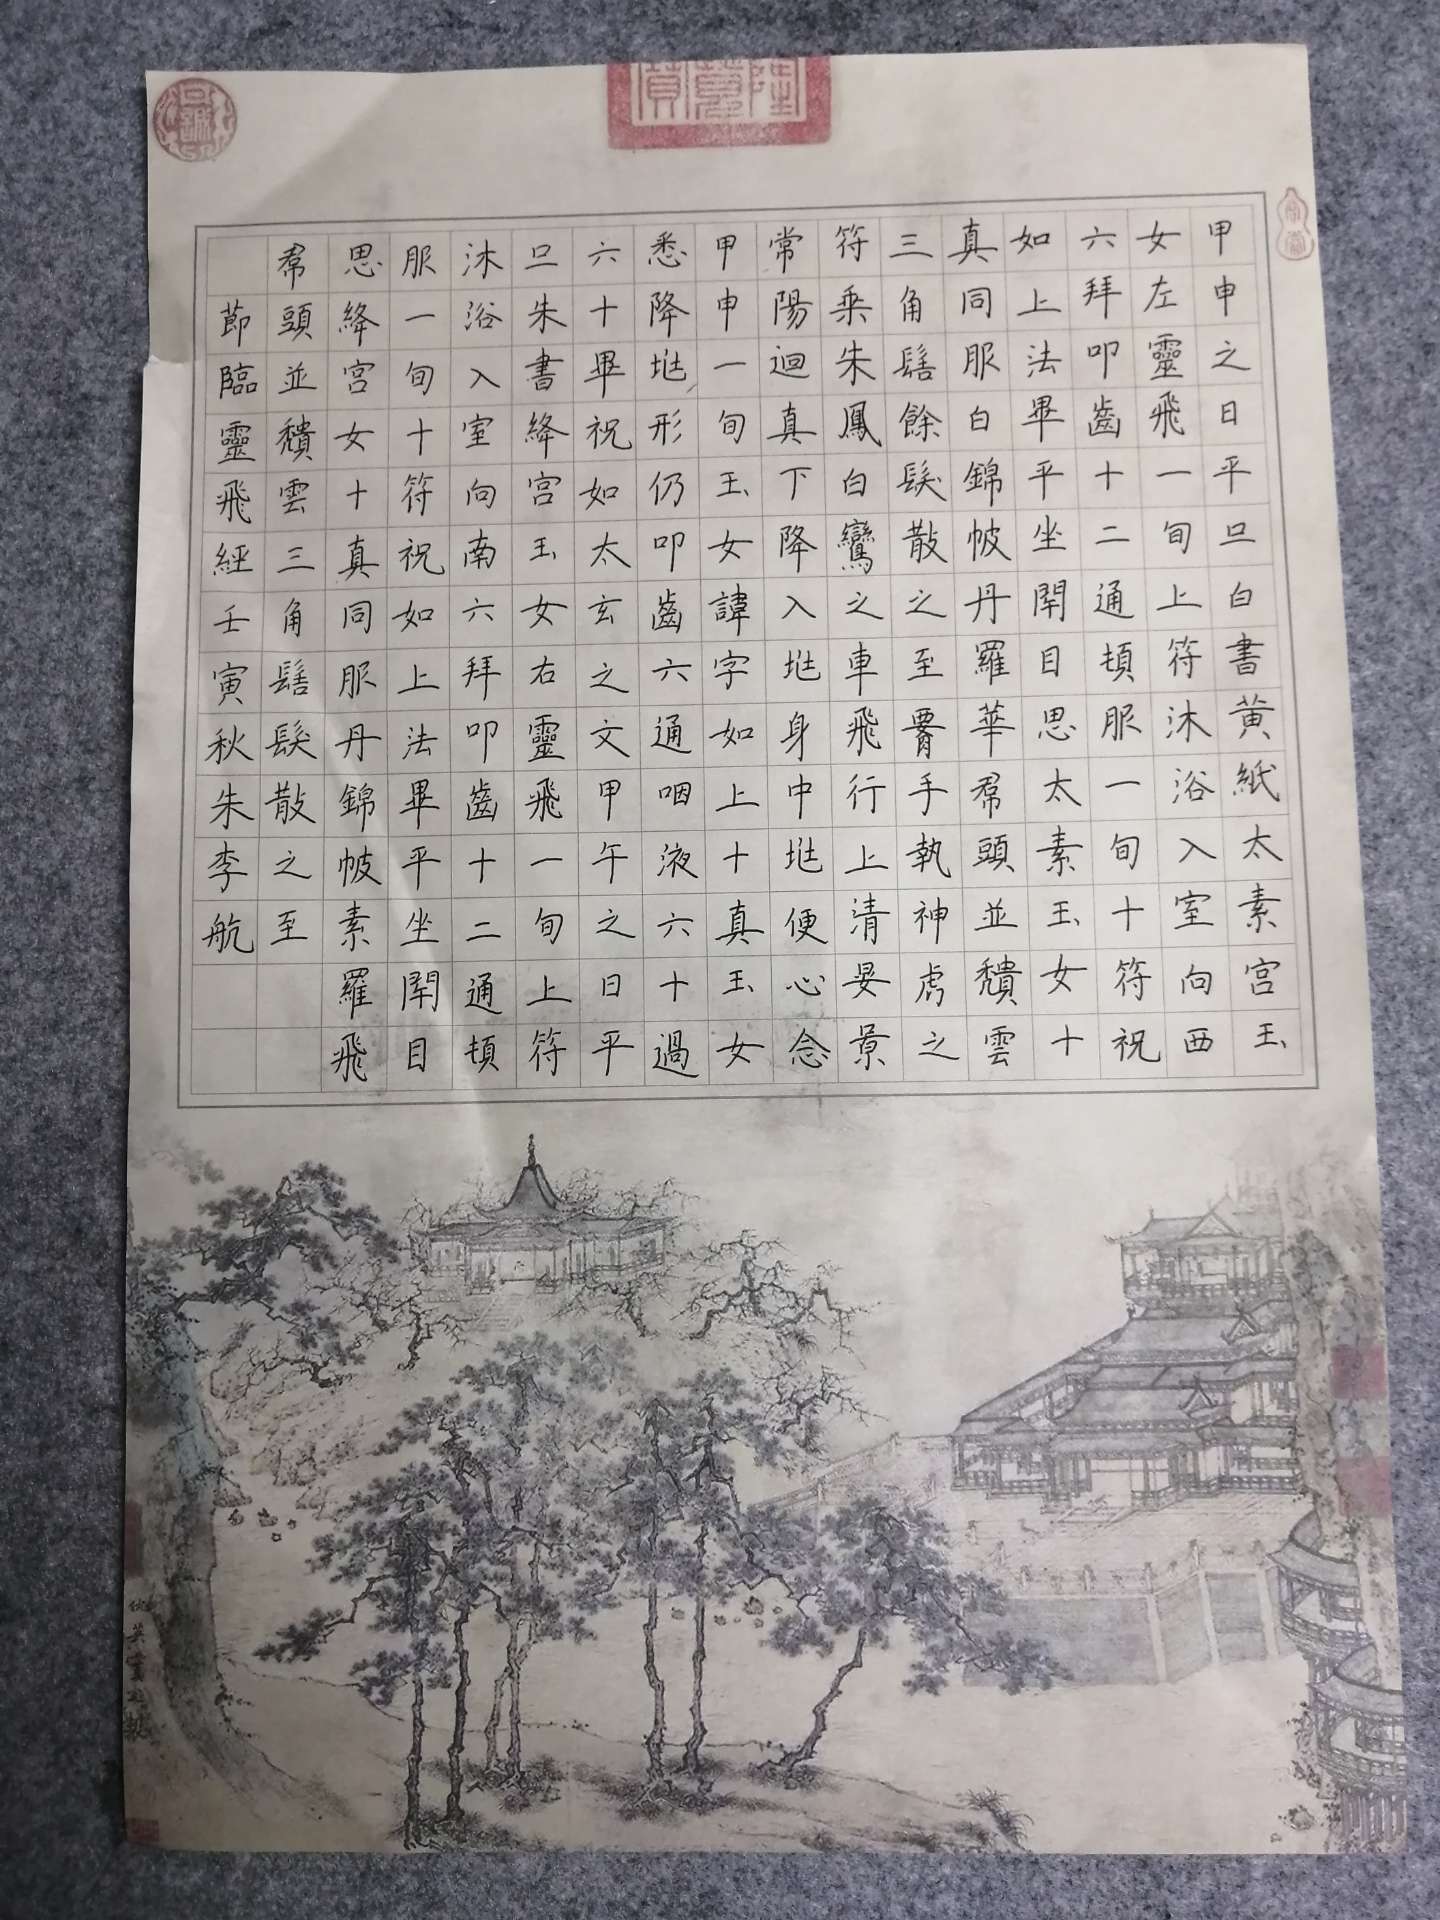 甲申之日平旦白書黃紙太素宮玉
女左靈飛一旬上符沐浴入室向西
六拜叩齒十二通頓服一旬十符祝
如上法畢平坐閉目思太素玉女十
真同服白錦帔丹羅華帬頭並頹雲
三角髻餘髮散之至腰手執神虎之
符乘朱鳳白鸞之車飛行上清晏景
常陽迴真下降入兆身中兆便心念
甲申一旬玉女諱字如上十真玉女
悉降兆形仍叩齒六通咽液六十過
六十畢祝如太玄之文甲午之日平
旦朱書絳宮玉女右靈飛一旬上符
沐浴入室向南六拜叩齒十二通頓
服一旬十符祝如上法畢平坐閉目
思絳宮女十真同服丹錦帔素羅飛
帬頭並頹雲三角髻髮散之至
節臨靈飛經壬寅秋朱李航